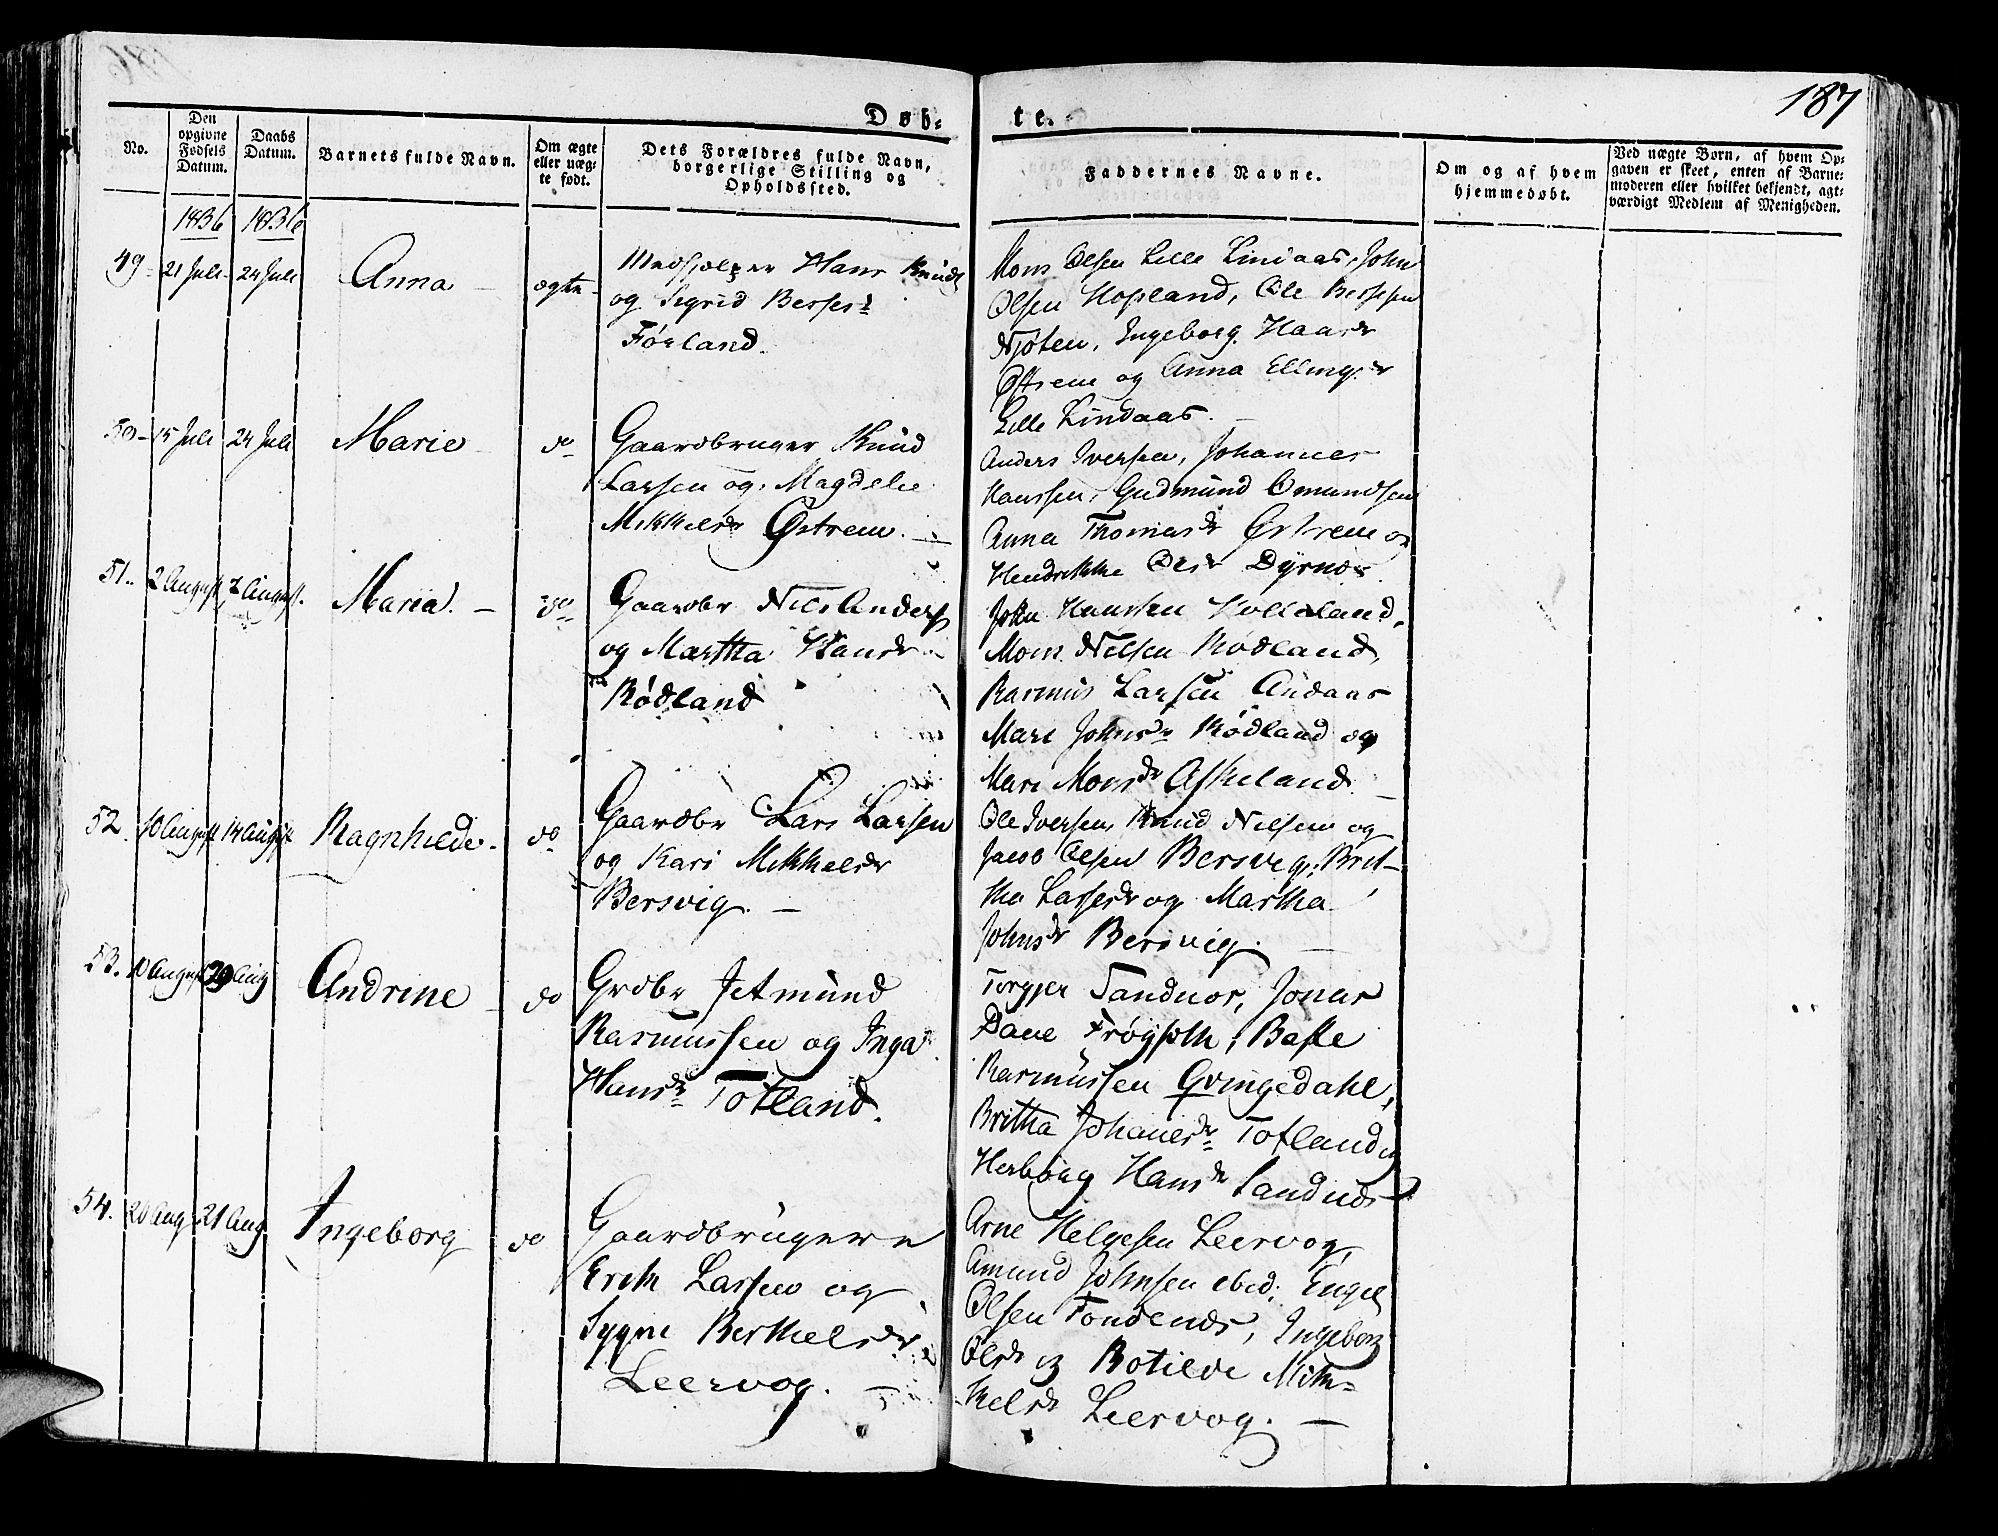 187
Døb-
te.
No.
Den opgivne Fødsels Datum.
Daabs Datum.
Barnets fulde Navn.
Om ægte eller uæg-te født.
Dets Forældres fulde Navn, borgerlige Stilling og Opholdssted.
Faddernes Navne.
Om og af hvem hjemmedøbt.
Ved uægte Børn, af hvem Op-gaven er skeet, enten af Barne-moderen eller hvilket bekjendt, agt-værdigt Medlem af Menigheden.
1836 1836
49 21 Juli 24 Juli Anna ægte
Hans Knuds
og Sigrid
Førland.
Mons Olsen Lille Lindaas, John
Olsen Hopland, Ole
Ingeborg
og Anna
Lille Lindaas.
50 15 Juli 24 Juli Marie do
Gaardbruger Knud
Larsen og Magdele
Mikkelsdr Østrem.
Anders Iversen, Johannes
Hanssen, Gudmund Omundsen
Anna Thomasdr Østrem og
Hendrikke
51. 2 August 7 August. Maria. do
Gaardbr Nils Anders
og Martha Hansdr
Rødland
John Hanssen
Mons Nilsen Rødland,
Rasmus Larsen
Mari Johnsdr Rødland og
Mari Monsdr Askeland.
52 10 August 14 August Ragnhilde do
Gaardbr Lars Larsen
og Kari Mikkelsdr
Bersvig.
Ole Iversen, Knud Nilsen og
Jacob Olsen Bersvig, Brit-
tha Larsdr og Martha
Johnsdr Bersvig.
53. 10 August Aug Andrine do
Grdbr Jetmund
Rasmussen og Inga
Hansdr Totland.
Torgjer Sandnos, Jonas
Dave
Rasmussen Qvingedahl,
Britha Johanesdr Totland og
Herborg Hansdr Sandnos
54. 20 Aug 21 Aug Ingeborg do
Gaardbrugere
Erik Larsen og
Sygni Berthelsdr
Leervog.
Arne Helgesen Leervog,
Amund Johnsen ibid:
Olsen Fondenes, Ingeborg
Olsdr og Botilde Mik-
kelsdr Leervog.